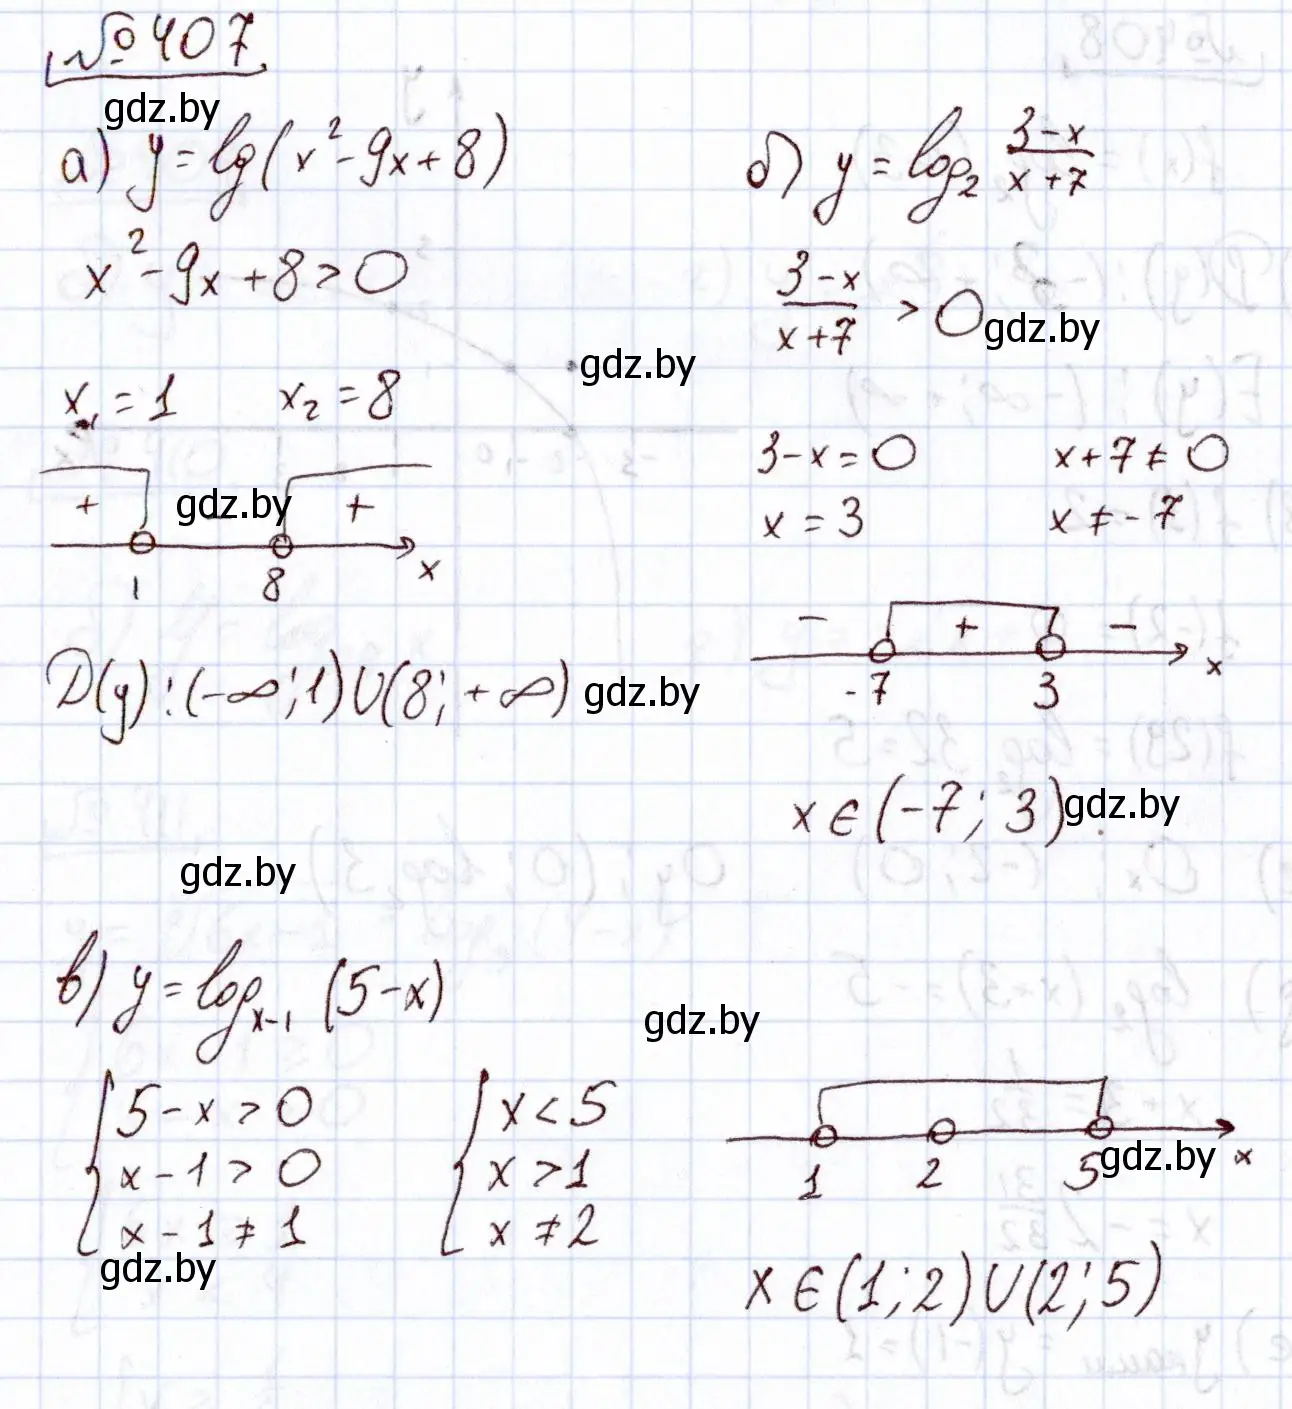 №407
gdz.by
а) y = lg(x² - 9x + 8)
x² - 9x + 8 > 0
gdz.by
x₁ = 1 x₂ = 8
+ gdz.by +
1 8 x
D(y): (-∞; 1) ∪ (8; +∞) gdz.by
gdz.by
б) y = log₂ (3-x)/(x+7)
(3-x)/(x+7) > 0 gdz.by
3 - x = 0 x + 7 ≠ 0
x = 3 x ≠ -7
- + -
-7 3 x
x ∈ (-7; 3) gdz.by
в) y = log_{x-1} (5-x)
gdz.by
{ 5 - x > 0 { x < 5
x - 1 > 0 x > 1
x - 1 ≠ 1 x ≠ 2
gdz.by
1 2 5 gdz.by x
x ∈ (1; 2) ∪ (2; 5)